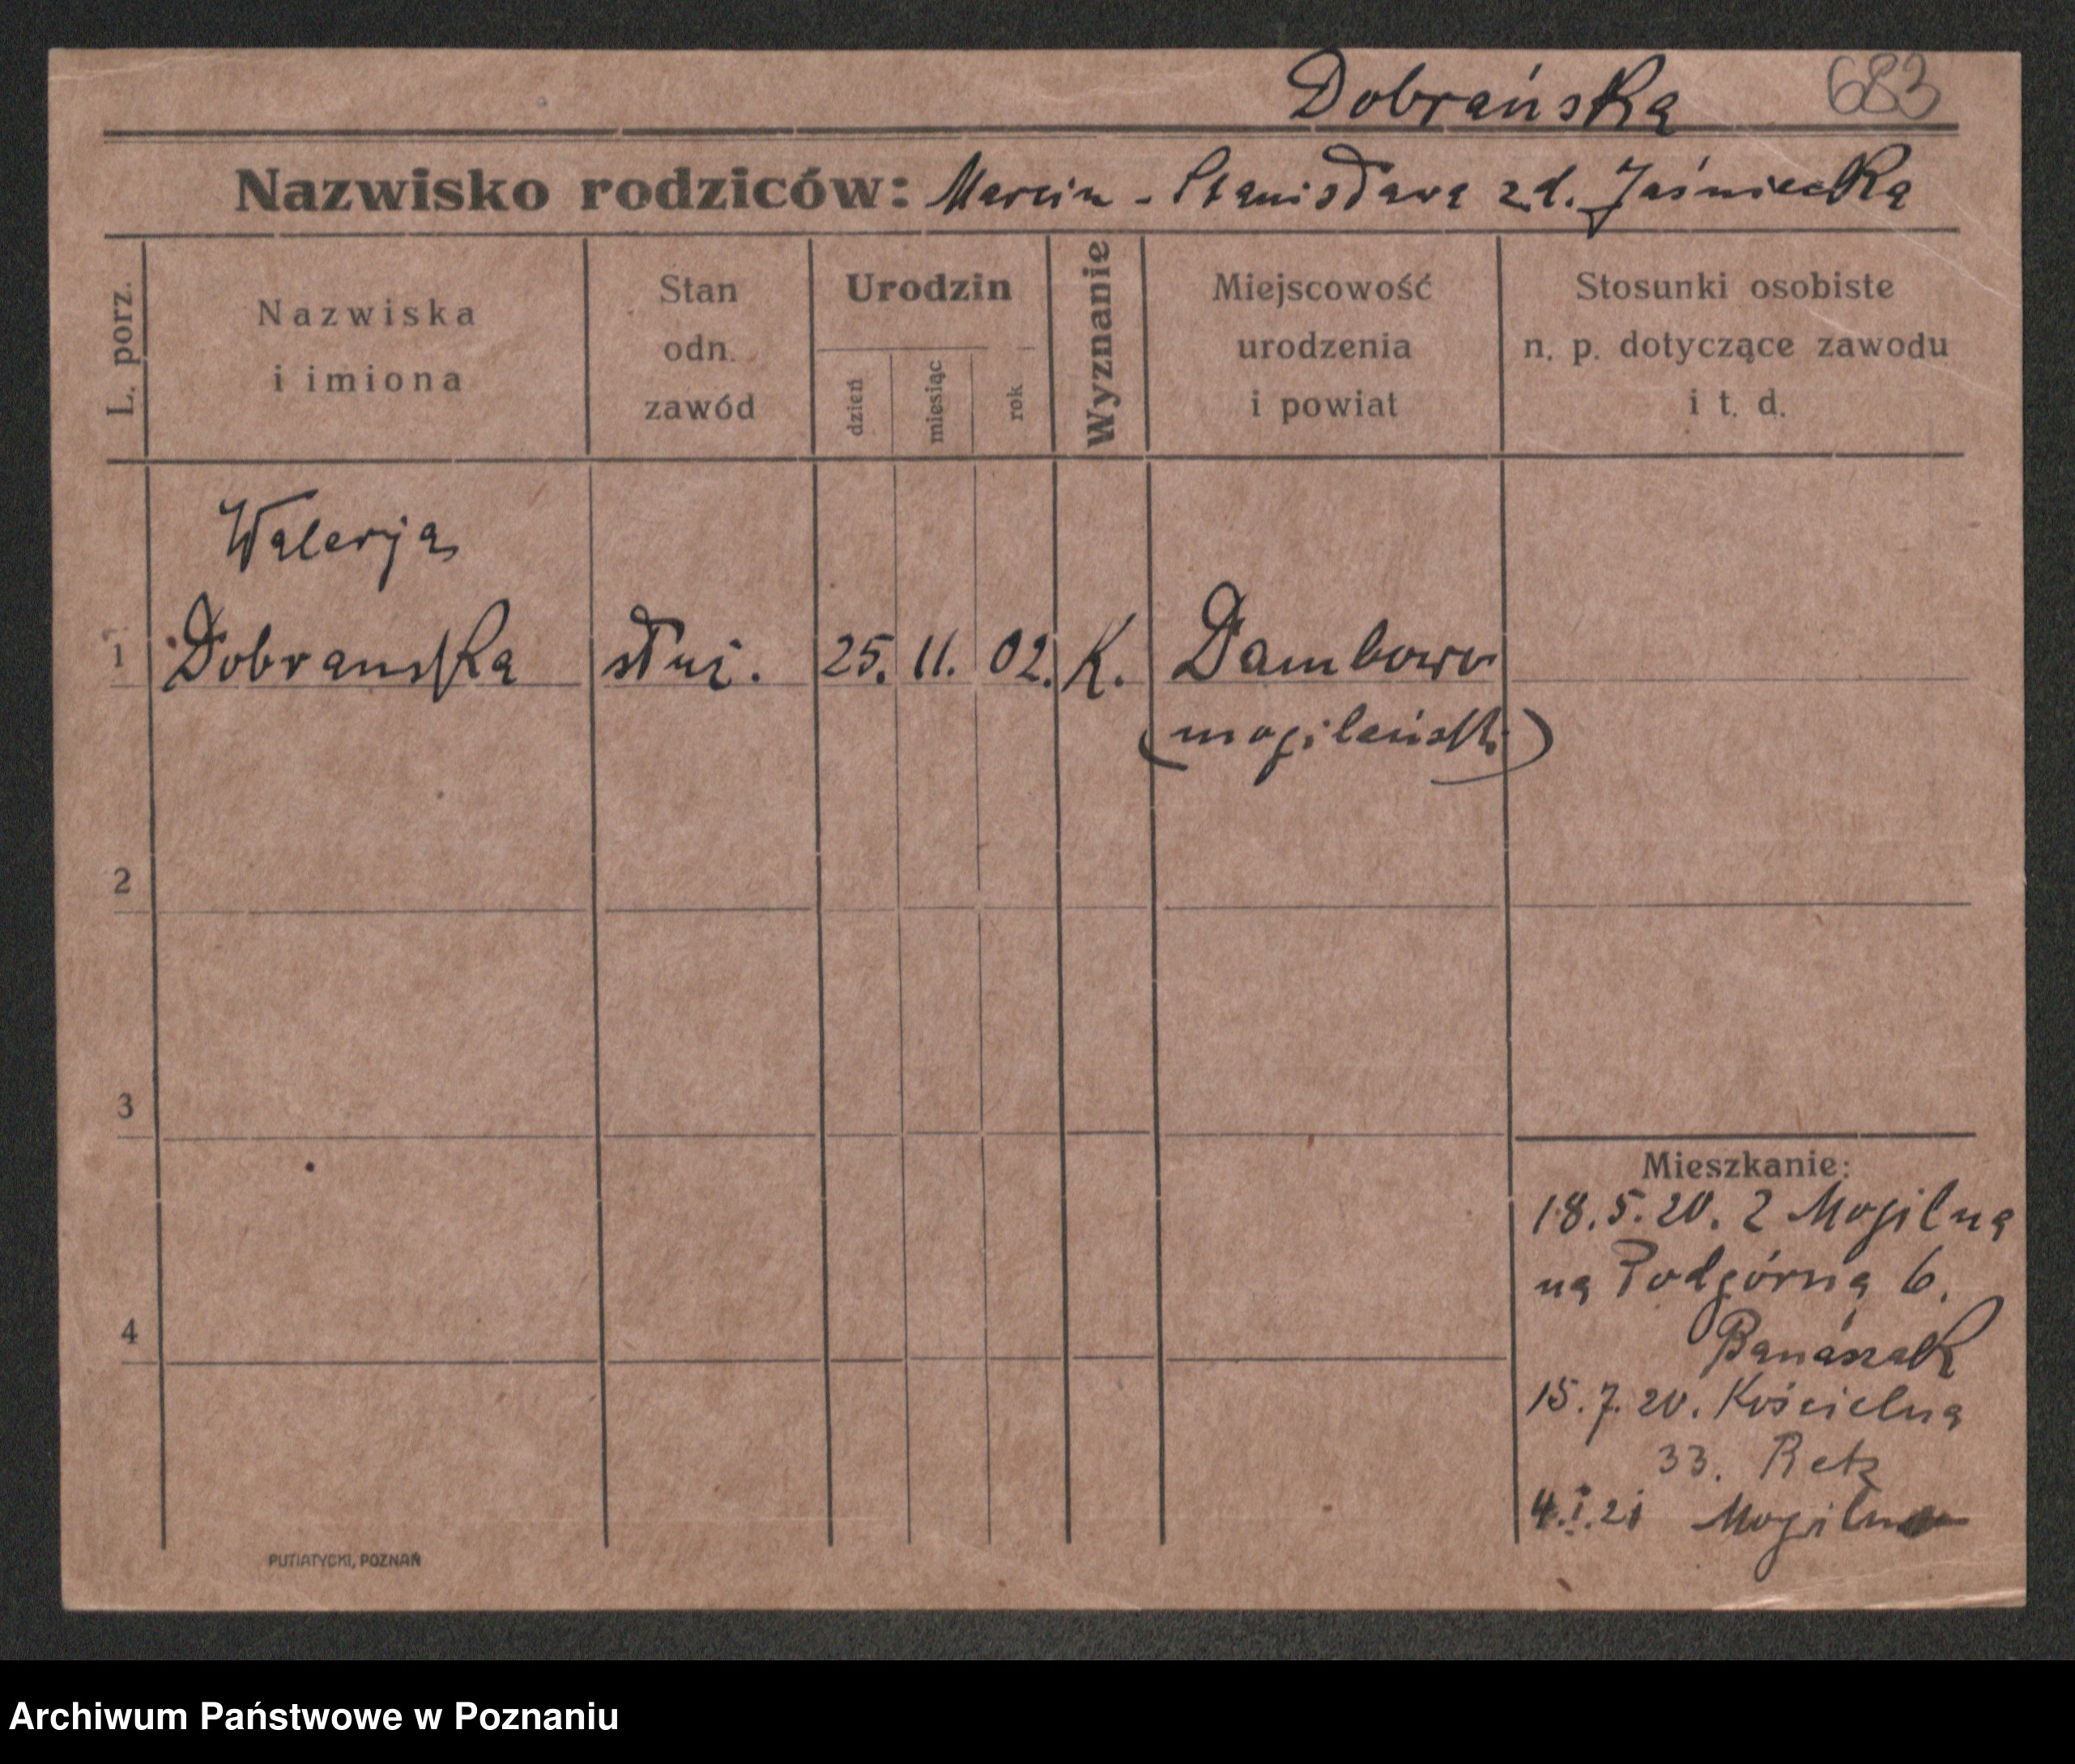 Dobrańska 683
Nazwisko rodziców: Marcin - Stanisława zd. Jaśniecka
L. porz.
Nazwiska
i imiona
Stan
odn.
zawód
Urodzin
dzień
miesiąc
rok
Wyznanie
Miejscowość
urodzenia
i powiat
Stosunki osobiste
n. p. dotyczące zawodu
i t. d.
Walerja
1 Dobranska służ. 25. 11. 02. K. Dambowo
(mogileński)
2
3
4
Mieszkanie:
18.5.20. z Mogilna
na Podgórną 6.
Banaszak
15.7.20. Kościelna
33. Retz
4.I.21 Mogilno
PUTIATYCKI, POZNAŃ
Archiwum Państwowe w Poznaniu